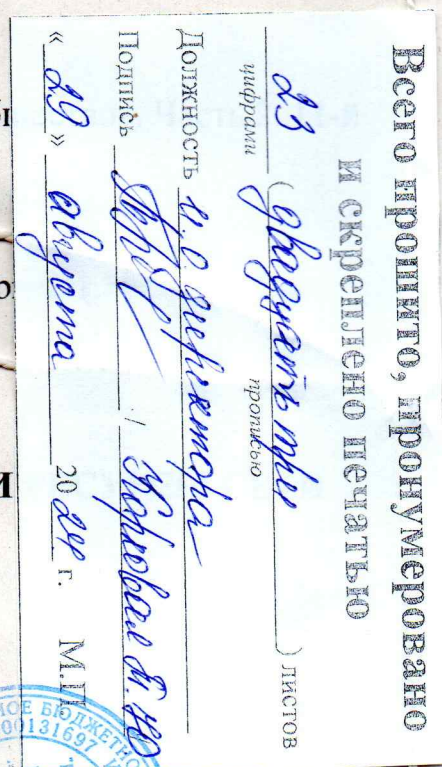 Всего прошито, пронумеровано
и скреплено печатью
23 (двадцать три) листов
цифрами прописью
Должность и.о. директора
Подпись /
« 29 » августа 2024 г. М.П
НОЕ БЮДЖЕТНО
00131697